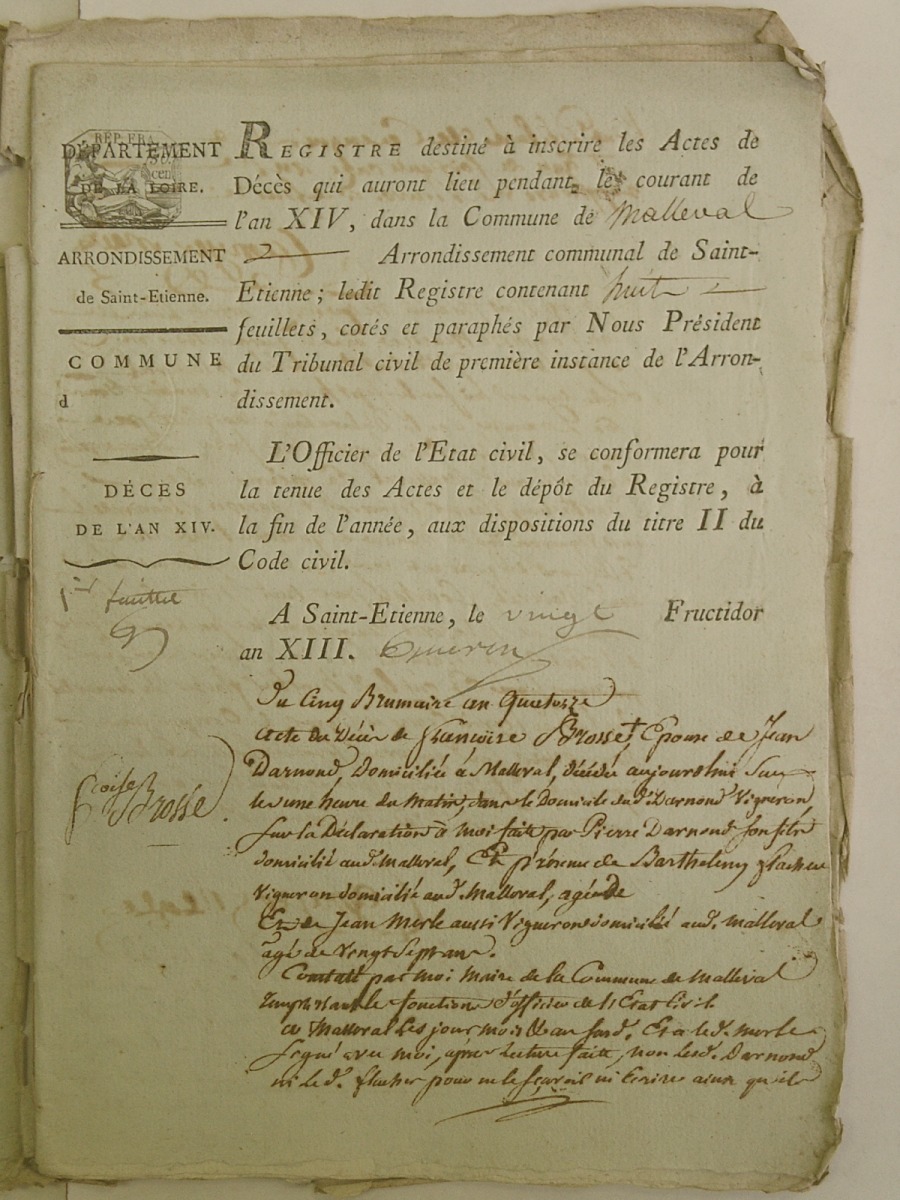 RÉP. FRA.
DÉPARTEMENT
DE LA LOIRE.
ARRONDISSEMENT
de Saint-Etienne.
COMMUNE
d
DÉCES
DE L'AN XIV.
1er feuillet
REGISTRE destiné à inscrire les Actes de
Décès qui auront lieu pendant le courant de
l'an XIV, dans la Commune de Malleval
Arrondissement communal de Saint-
Etienne; ledit Registre contenant huit
feuillets, cotés et paraphés par Nous Président
du Tribunal civil de première instance de l'Arron-
dissement.
L'Officier de l'Etat civil, se conformera pour
la tenue des Actes et le dépôt du Registre, à
la fin de l'année, aux dispositions du titre II du
Code civil.
A Saint-Etienne, le vingt Fructidor
an XIII.
Du Cinq Brumaire an Quatorze
acte du Décès de Françoise Brosse, Epouse de Jean
Darnond, Domiciliée à Malleval, décédée aujourdhui Sur
les une heure du Matin, dans le Domicile dud. Darnond Vigneron
Sur la Déclaration à moi faite par Pierre Darnond son fils
domicilié aud. Malleval, Et présence de Barthelemy flacher
Vigneron domicilié aud. Malleval, agé de
Et de Jean Merle aussi Vigneron domicilié aud. Malleval
agé de Vingt Sept ans.
Constaté par moi Maire de la Commune de Malleval
remplissant le fonctions d'officier de l'Etat Civil
de Malleval Les jour mois & an susd. Et a led. Merle
signé avec moi, après Lecture faite, non led. Darnond
ni le d. flacher pour ne le sçavoir ni Ecrire ainsi qu'ils
fcoise Brosse